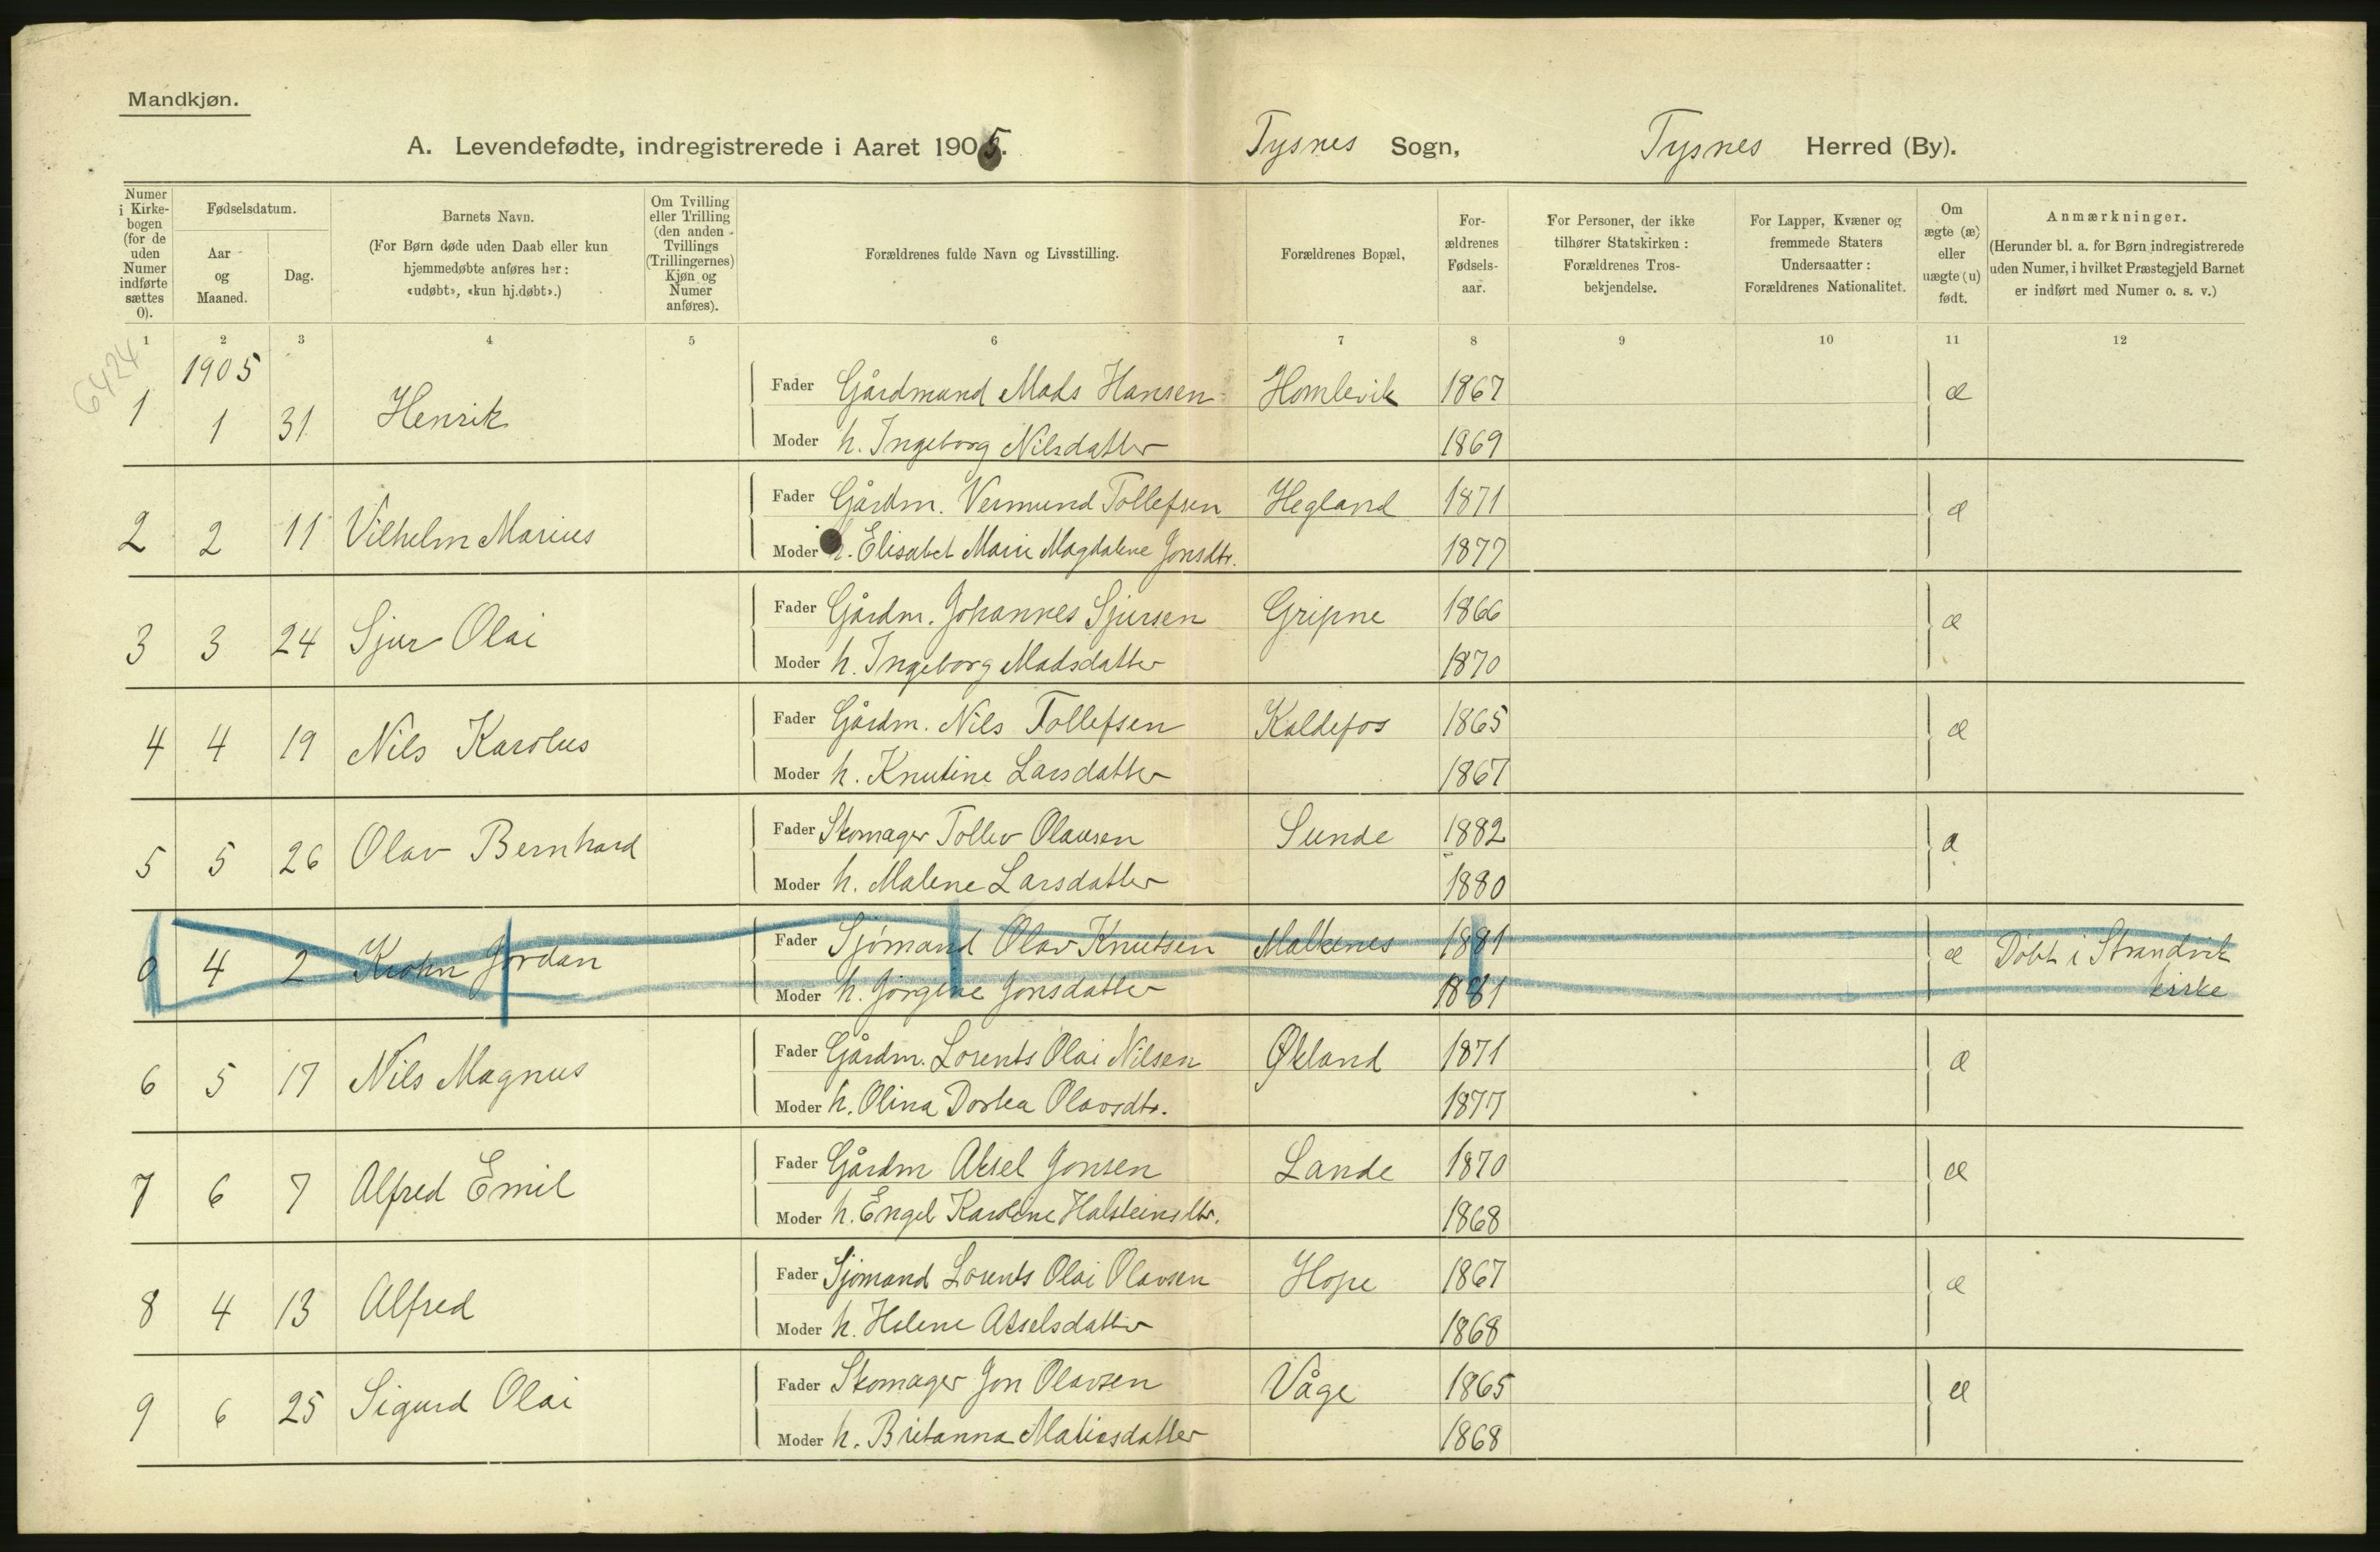 Mandkjøn.
A. Levendefødte, indregistrerede i Aaret 1905. Tysnes Sogn, Tysnes Herred (By).
Numer i Kirkebogen (for de uden Numer indførte sættes 0).
Fødselsdatum.
Aar og Maaned.
Dag.
Barnets Navn.
(For Børn døde uden Daab eller kun hjemmedøbte anføres her: «udøbt», «kun hj.døbt».)
Om Tvilling eller Trilling (den anden Tvillings (Trillingernes) Kjøn og Numer anføres).
Forældrenes fulde Navn og Livsstilling.
Forældrenes Bopæl,
Forældrenes Fødselsaar.
For Personer, der ikke tilhører Statskirken: Forældrenes Trosbekjendelse.
For Lapper, Kvæner og fremmede Staters Undersaatter: Forældrenes Nationalitet.
Om ægte (æ) eller uægte (u) født.
Anmærkninger.
(Herunder bl. a. for Børn indregistrerede uden Numer, i hvilket Præstegjeld Barnet er indført med Numer o. s. v.)
1 2 3 4 5 6 7 8 9 10 11 12
6424
1905
1 1 31 Henrik Fader Gårdmand Mads Hansen Homlevik 1867 æ
Moder h. Ingeborg Nilsdatter 1869
2 2 11 Vilhelm Marius Fader Gårdm. Vermund Tollefsen Hegland 1871 æ
Moder h. Elisabet Marie Magdalene Jonsdtr. 1877
3 3 24 Sjur Olai Fader Gårdm. Johannes Sjursen Gripne 1866 æ
Moder h. Ingeborg Madsdatter 1870
4 4 19 Nils Karolus Fader Gårdm. Nils Tollefsen Kaldefos 1865 æ
Moder h. Knutine Larsdatter 1867
5 5 26 Olav Bernhard Fader Skomager Tollev Olausen Sunde 1882 æ
Moder h. Malene Larsdatter 1880
0 4 2 Krohn Jordan Fader Sjømand Olav Knutsen Malkenes 1881 æ Døbt i Strandvik
Moder h. Jørgine Jonsdatter 1881 kirke
6 5 17 Nils Magnus Fader Gårdm. Lorents Olai Nilsen Økland 1871 æ
Moder h. Olina Dortea Olavsdtr. 1877
7 6 7 Alfred Emil Fader Gårdm Aksel Jonsen Lande 1870 æ
Moder h. Engel Karoline Halsteinsdtr. 1868
8 4 13 Alfred Fader Sjømand Lorents Olai Olavsen Hope 1867 æ
Moder h. Helene Akselsdatter 1868
9 6 25 Sigurd Olai Fader Skomager Jon Olavsen Våge 1865 æ
Moder h. Britanna Matiasdatter 1868